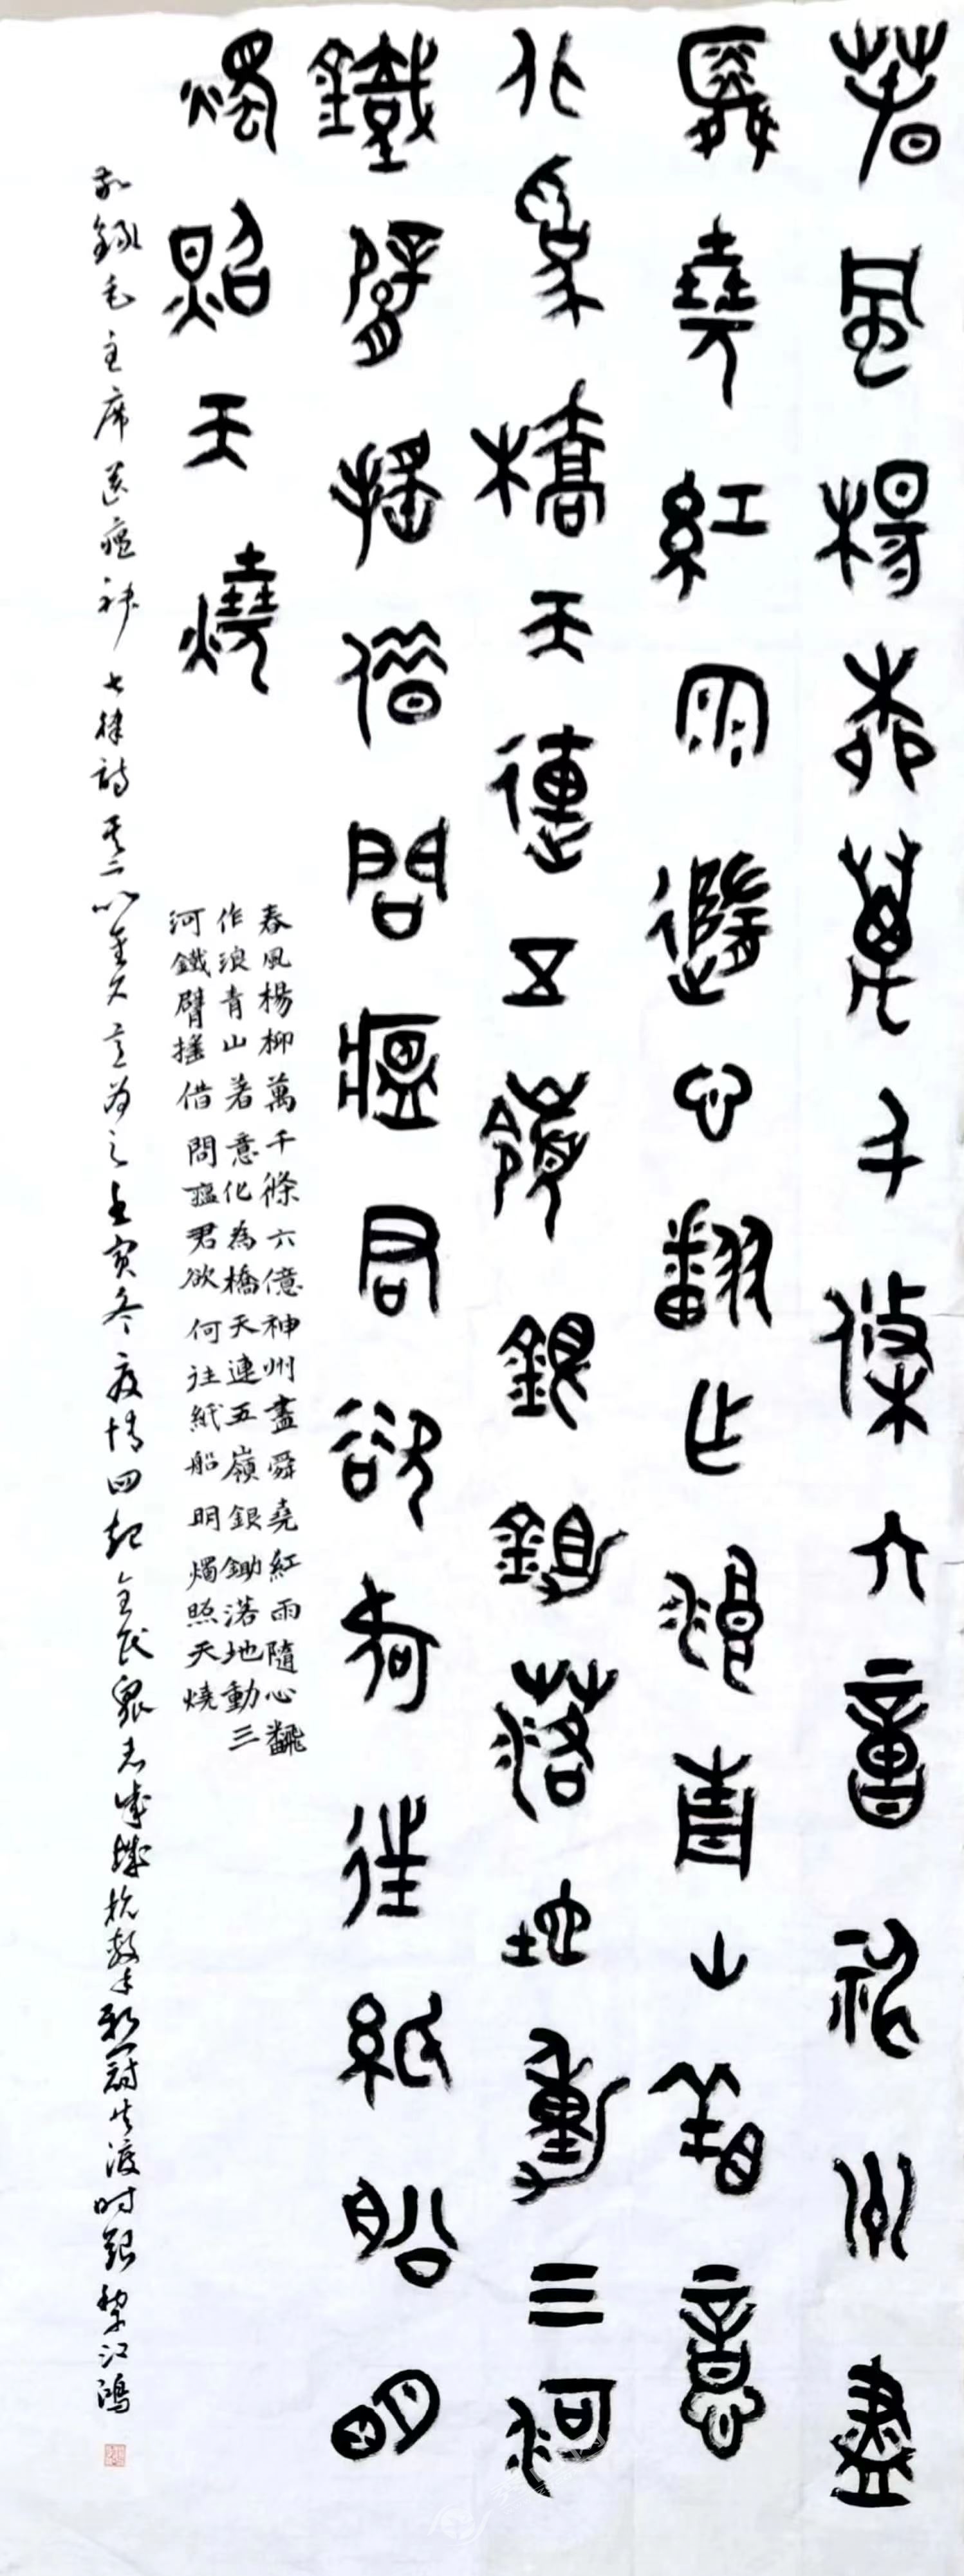 春風楊柳萬千條六億神州盡
舜堯紅雨隨心翻作浪青山著意
化為橋天連五嶺銀鋤落地動三河
鐵臂搖借問瘟君欲何往紙船明
燭照天燒
春風楊柳萬千條六億神州盡舜堯紅雨隨心翻
作浪青山著意化為橋天連五嶺銀鋤落地動三
河鐵臂搖借問瘟君欲何往紙船明燭照天燒
敬錄毛主席送瘟神七律詩其二以金文意為之壬寅冬疫情四起全民眾志成城抗毒共渡時艱黎江鴻